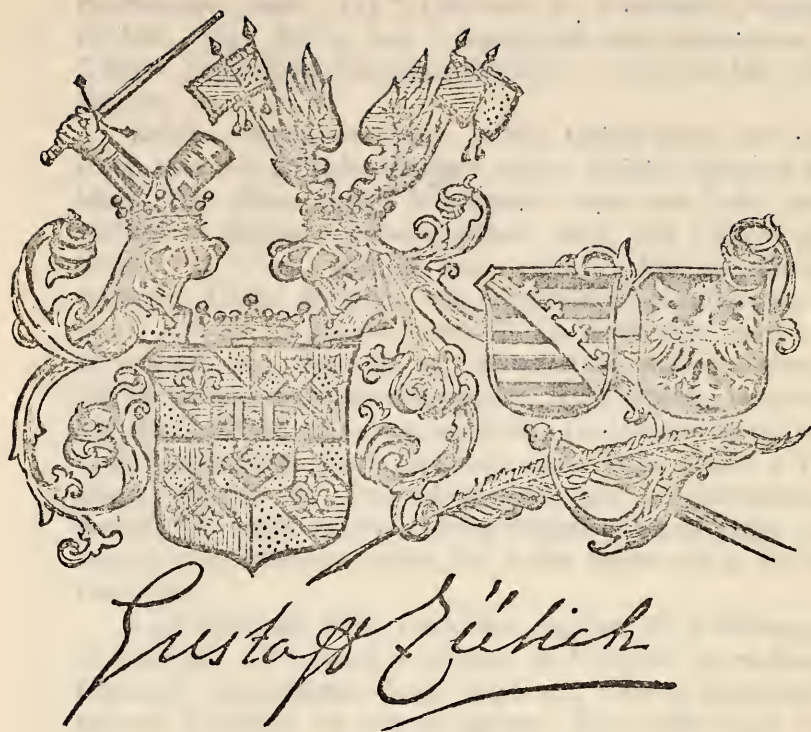 Gustaff Zülich